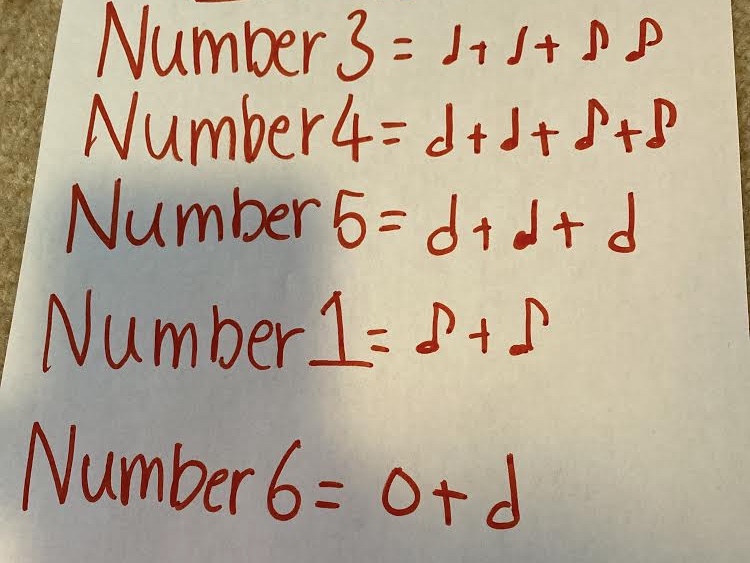 Number 3 = ♩+ ♩+ ♪ ♪
Number 4 = 𝅗𝅥+♩+ ♪+♪
Number 5 = 𝅗𝅥+♩+ 𝅗𝅥
Number 1 = ♪+♪
Number 6 = 𝅝+𝅗𝅥